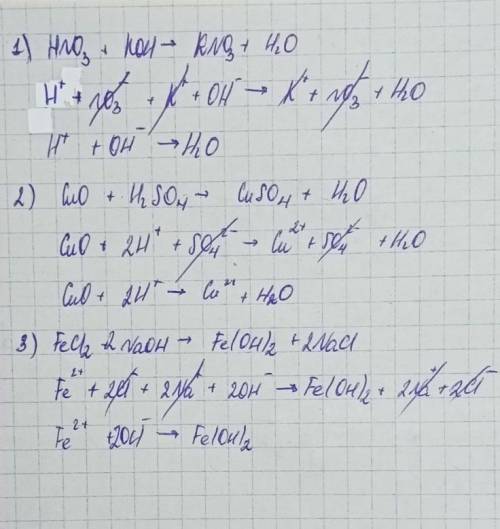 1) HNO₃ + KOH → KNO₃ + H₂O
H⁺ + NO₃⁻ + K⁺ + OH⁻ → K⁺ + NO₃⁻ + H₂O
H⁺ + OH⁻ → H₂O
2) CuO + H₂SO₄ → CuSO₄ + H₂O
CuO + 2H⁺ + SO₄²⁻ → Cu²⁺ + SO₄²⁻ + H₂O
CuO + 2H⁺ → Cu²⁺ + H₂O
3) FeCl₂ + 2NaOH → Fe(OH)₂ + 2NaCl
Fe²⁺ + 2Cl⁻ + 2Na⁺ + 2OH⁻ → Fe(OH)₂ + 2Na⁺ + 2Cl⁻
Fe²⁺ + 2OH⁻ → Fe(OH)₂